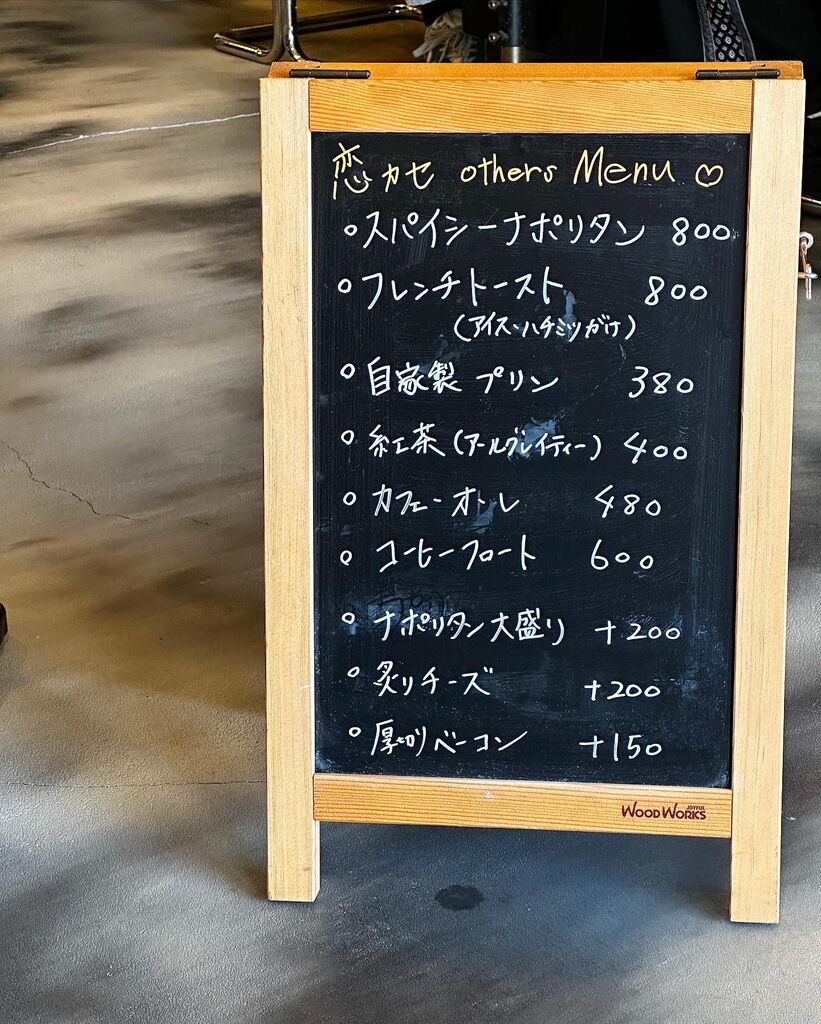 恋カセ others Menu ♡
○ スパイシーナポリタン 800
○ フレンチトースト 800
(アイス・ハチミツがけ)
○ 自家製 プリン 380
○ 紅茶 (アールグレイティー) 400
○ カフェ・オ・レ 480
○ コーヒーフロート 600
○ ナポリタン大盛り +200
○ 炙りチーズ +200
○ 厚切りベーコン +150
JOYFUL
WOODWORKS